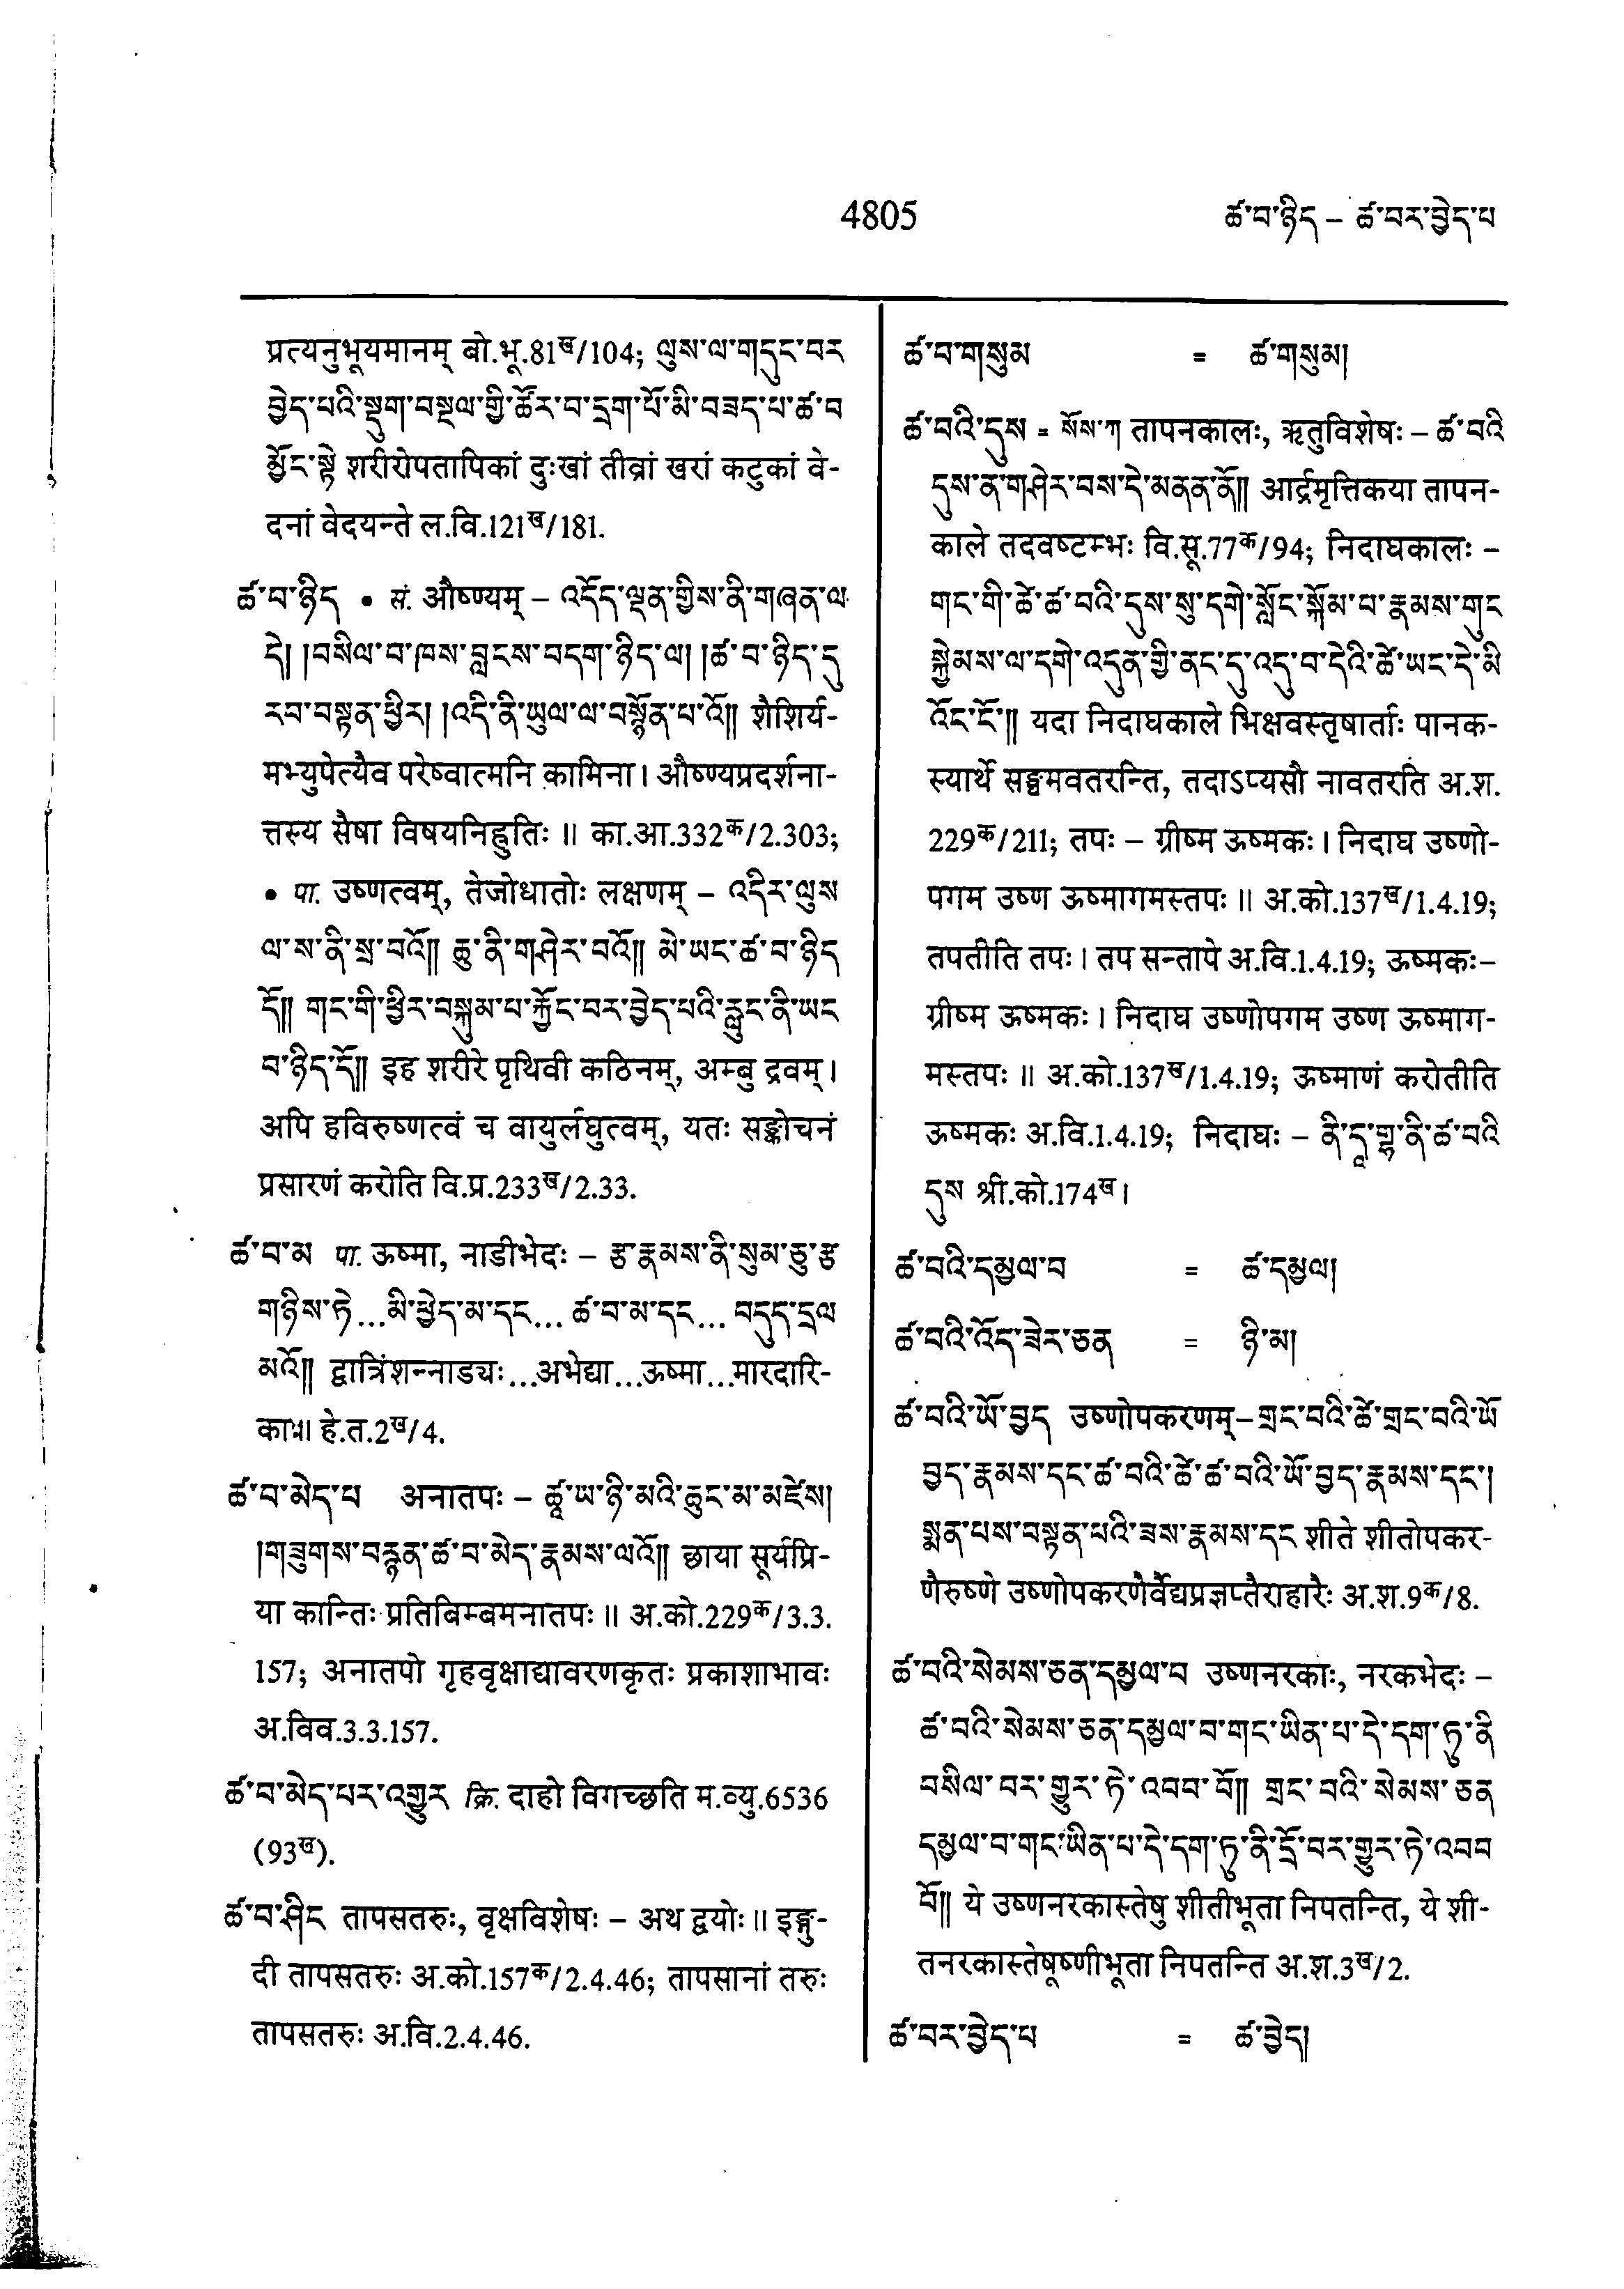 4805
ཚ་བ་ཉིད – ཚ་བར་བྱེད་པ
प्रत्यनुभूयमानम् बो.भू.81ख/104; ལུས་ལ་གདུང་བར
བྱེད་པའི་སྡུག་བསྔལ་གྱི་ཚོར་བ་དྲག་པོ་མི་བཟད་པ་ཚ་བ
མྱོང་སྟེ शरीरोपतापिकां दुःखां तीव्रां खरां कटुकां वे-
दनां वेदयन्ते ल.वि.121ख/181.
ཚ་བ་ཉིད • सं. औष्ण्यम् – འདོད་ལྡན་གྱིས་ནི་གཞན་ལ
དེ། །བསིལ་བ་ཁས་བླངས་བདག་ཉིད་ལ། །ཚ་བ་ཉིད་དུ
རབ་བསྟན་ཕྱིར། །འདི་ནི་ཡུལ་ལ་བསྙོན་པ་འོ།། शैशिर्य-
मभ्युपेत्यैव परेष्वात्मनि कामिना। औष्ण्यप्रदर्शना-
त्तस्य सैषा विषयनिह्नुतिः॥ का.आ.332क/2.303;
• पा. उष्णत्वम्, तेजोधातोः लक्षणम् – འདིར་ལུས
ལ་ས་ནི་སྲ་བའོ།། ཆུ་ནི་གཤེར་བའོ།། མེ་ཡང་ཚ་བ་ཉིད
དོ།། གང་གི་ཕྱིར་བསྐུམ་པ་རྐྱོང་བར་བྱེད་པའི་རླུང་ནི་ཡང
བ་ཉིད་དོ།། इह शरीरे पृथिवी कठिनम्, अम्बु द्रवम्।
अपि हविरुष्णत्वं च वायुर्लघुत्वम्, यतः सङ्कोचनं
प्रसारणं करोति वि.प्र.233ख/2.33.
ཚ་བ་མ पा. ऊष्मा, नाडीभेदः – རྩ་རྣམས་ནི་སུམ་ཅུ་རྩ
གཉིས་ཏེ...མི་ཕྱེད་མ་དང... ཚ་བ་མ་དང... བདུད་དྲལ
མའོ།། द्वात्रिंशन्नाड्यः...अभेद्या...ऊष्मा...मारदारि-
का॥ हे.त.2ख/4.
ཚ་བ་མེད་པ अनातपः – ཚཱ་ཡ་ཉི་མའི་ཆུང་མ་མཛེས།
།གཟུགས་བརྙན་ཚ་བ་མེད་རྣམས་ལའོ།། छाया सूर्यप्रि-
या कान्तिः प्रतिबिम्बमनातपः॥ अ.को.229क/3.3.
157; अनातपो गृहवृक्षाद्यावरणकृतः प्रकाशाभावः
अ.विव.3.3.157.
ཚ་བ་མེད་པར་འགྱུར क्रि. दाहो विगच्छति म.व्यु.6536
(93ख).
ཚ་བ་ཤིང तापसतरुः, वृक्षविशेषः – अथ द्वयोः॥ इङ्गु-
दी तापसतरुः अ.को.157क/2.4.46; तापसानां तरुः
तापसतरुः अ.वि.2.4.46.
ཚ་བ་གསུམ = ཚ་གསུམ།
ཚ་བའི་དུས = སོས་ཀ तापनकालः, ऋतुविशेषः – ཚ་བའི
དུས་ན་གཤེར་བས་དེ་མནན་ནོ།། आर्द्रमृत्तिकया तापन-
काले तदवष्टम्भः वि.सू.77क/94; निदाघकालः –
གང་གི་ཚེ་ཚ་བའི་དུས་སུ་དགེ་སློང་སྐོམ་བ་རྣམས་གུང
སྐྱེམས་ལ་དགེ་འདུན་གྱི་ནང་དུ་འདུ་བ་དེའི་ཚེ་ཡང་དེ་མི
འོང་ངོ་།། यदा निदाघकाले भिक्षवस्तृषार्ताः पानक-
स्यार्थे सङ्घमवतरन्ति, तदाऽप्यसौ नावतरति अ.श.
229क/211; तपः – ग्रीष्म ऊष्मकः। निदाघ उष्णो-
पगम उष्ण ऊष्मागमस्तपः॥ अ.को.137ख/1.4.19;
तपतीति तपः। तप सन्तापे अ.वि.1.4.19; ऊष्मकः–
ग्रीष्म ऊष्मकः। निदाघ उष्णोपगम उष्ण ऊष्माग-
मस्तपः॥ अ.को.137ख/1.4.19; ऊष्माणं करोतीति
ऊष्मकः अ.वि.1.4.19; निदाघः – ནི་དཱ་གྷ་ནི་ཚ་བའི
དུས श्री.को.174ख।
ཚ་བའི་དམྱལ་བ = ཚ་དམྱལ།
ཚ་བའི་འོད་ཟེར་ཅན = ཉི་མ།
ཚ་བའི་ཡོ་བྱད उष्णोपकरणम्– གྲང་བའི་ཚེ་གྲང་བའི་ཡོ
བྱད་རྣམས་དང་ཚ་བའི་ཚེ་ཚ་བའི་ཡོ་བྱད་རྣམས་དང་།
སྨན་པས་བསྟན་པའི་ཟས་རྣམས་དང शीते शीतोपकर-
णैरुष्णे उष्णोपकरणैर्वैद्यप्रज्ञप्तैराहारैः अ.श.9क/8.
ཚ་བའི་སེམས་ཅན་དམྱལ་བ उष्णनरकाः, नरकभेदः –
ཚ་བའི་སེམས་ཅན་དམྱལ་བ་གང་ཡིན་པ་དེ་དག་ཏུ་ནི
བསིལ་བར་གྱུར་ཏེ་འབབ་བོ།། གྲང་བའི་སེམས་ཅན
དམྱལ་བ་གང་ཡིན་པ་དེ་དག་ཏུ་ནི་དྲོ་བར་གྱུར་ཏེ་འབབ
བོ།། ये उष्णनरकास्तेषु शीतीभूता निपतन्ति, ये शी-
तनरकास्तेषूष्णीभूता निपतन्ति अ.श.3ख/2.
ཚ་བར་བྱེད་པ = ཚ་བྱེད།